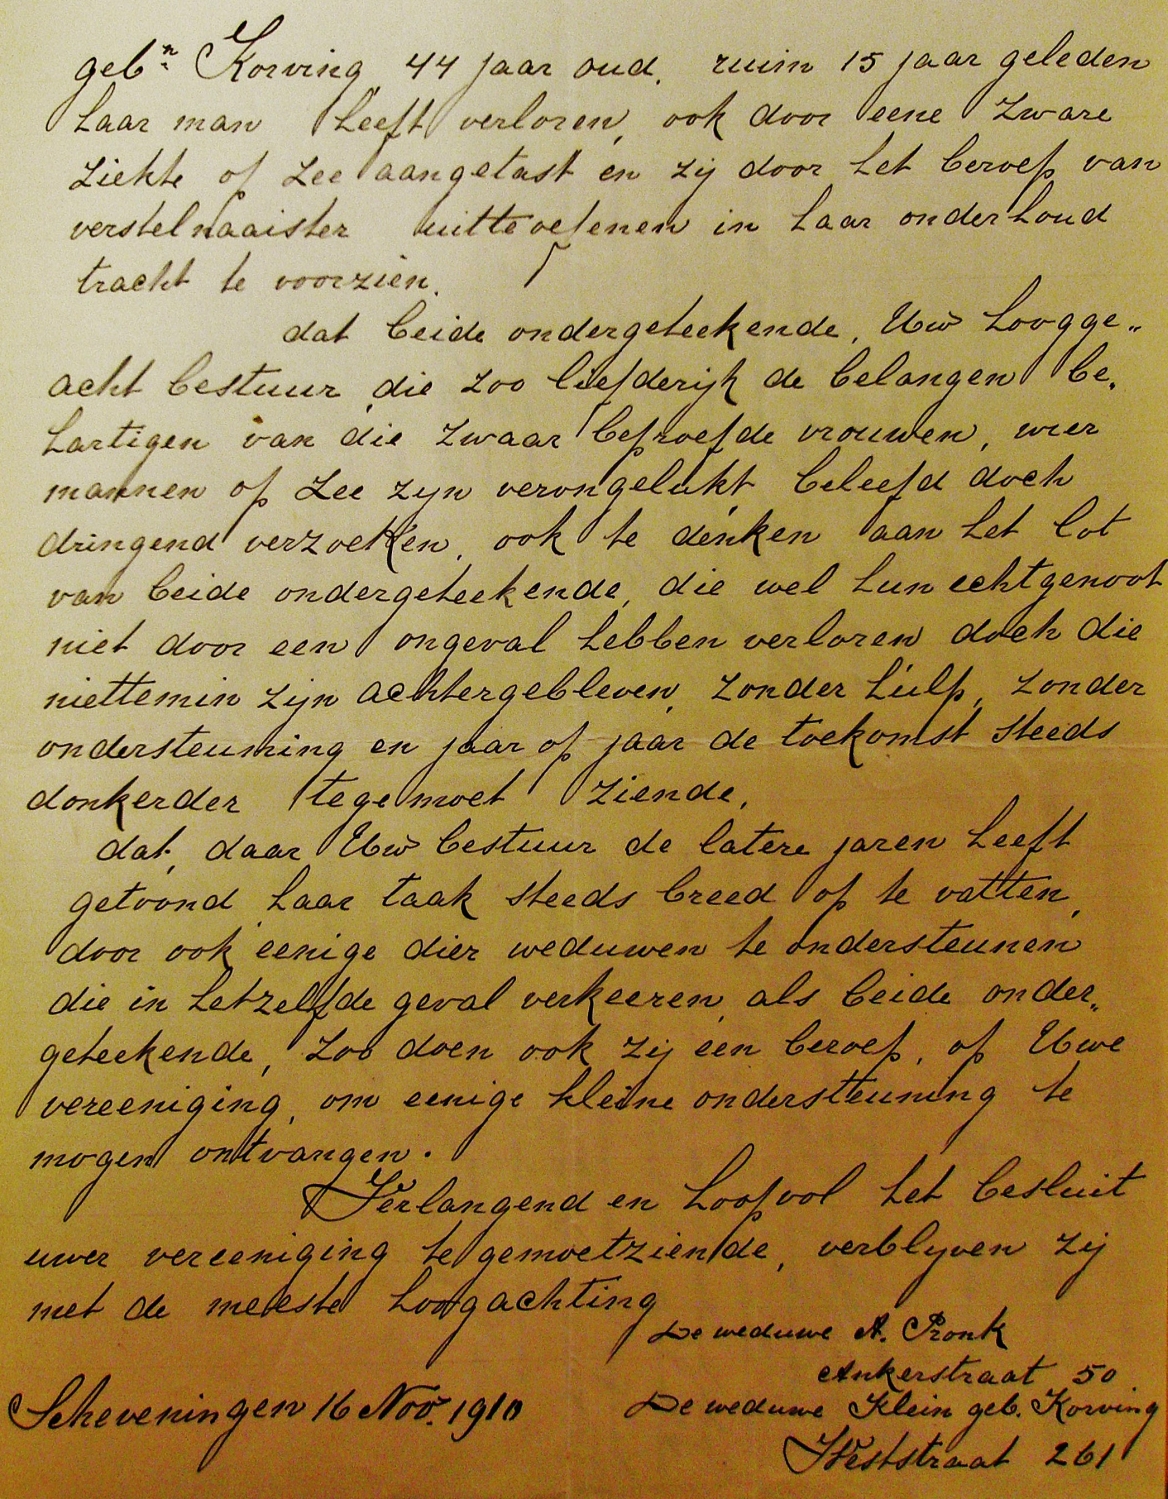 gebn. Korving, 44 jaar oud, ruim 15 jaar geleden
haar man heeft verloren, ook door eene zware
ziekte op zee aangetast en zij door het beroep van
verstelnaaister uitteoefenen in haar onderhoud
tracht te voorzien.
dat beide ondergeteekende, Uw hoogge„
acht bestuur, die zoo liefderijk de belangen be„
hartigen van die zwaar beproefde vrouwen, wier
mannen op zee zyn verongelukt, beleefd doch
dringend verzoeken, ook te denken aan het lot
van beide ondergeteekende, die wel hun echtgenoot
niet door een ongeval hebben verloren doch die
niettemin zijn achtergebleven, zonder hulp, zonder
ondersteuning en jaar op jaar de toekomst steeds
donkerder tegemoet ziende,
dat, daar Uw bestuur de latere jaren heeft
getoond haar taak steeds breed op te vatten,
door ook eenige dier weduwen te ondersteunen
die in hetzelfde geval verkeeren, als beide onder„
geteekende, zoo doen ook zij een beroep, op Uwe
vereeniging, om eenige kleine ondersteuning te
mogen ontvangen.
Verlangend en hoopvol het besluit
uwer vereeniging tegemoetziende, verblyven zij
met de meeste hoogachting
De weduwe A. Pronk
Ankerstraat 50
De weduwe Klein geb. Korving
Weststraat 261
Scheveningen 16 Nov. 1910